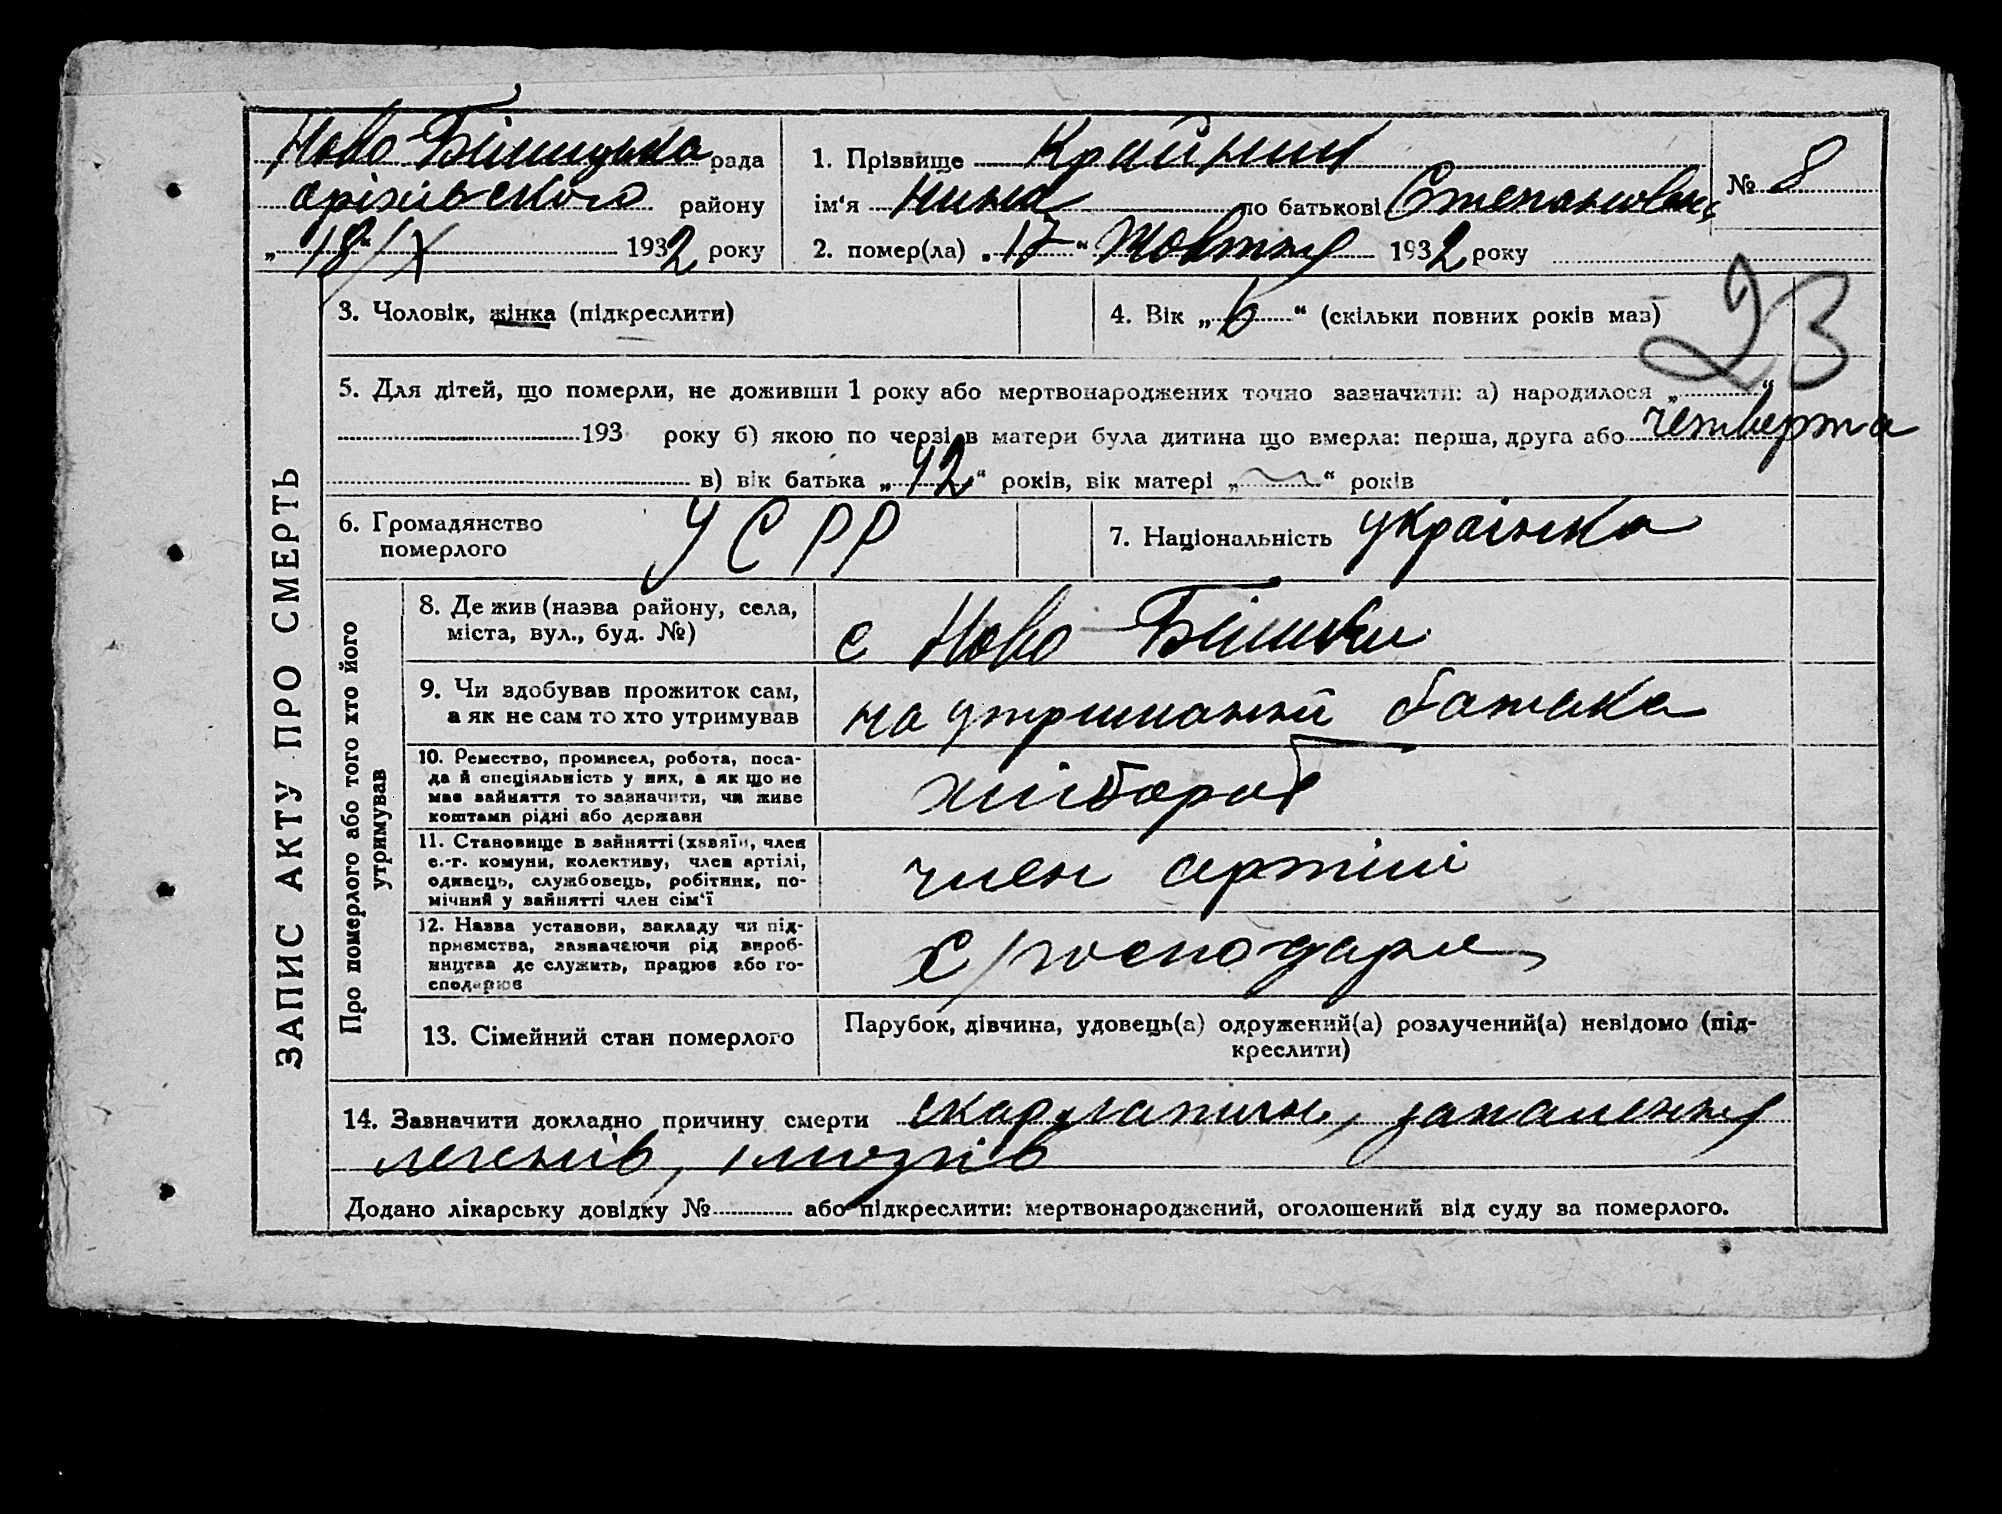 Ново-Білицька рада
оріхівського району
„ 18/X 1932 року
1. Прізвище Крайний
ім‘я Нина по батькові Степановна
№ 8
2. помер(ла) „17“ Жовтня 1932 року
23
3. Чоловік, жінка (підкреслити)
4. Вік „6“ (скільки повних років мав)
5. Для дітей, що померли, не доживши 1 року або мертвонароджених точно зазначити: а) народилося „ “
193 року б) якою по черзі в матери була дитина що вмерла: перша, друга або четверта
в) вік батька „42“ років, вік матері „ “ років
6. Громадянство
померлого
УСРР
7. Національність українка
ЗАПИС АКТУ ПРО СМЕРТЬ
Про померлого або того хто його
утримував
8. Де жив (назва району, села,
міста, вул., буд. №)
с Ново-Білики
9. Чи здобував прожиток сам,
а як не сам то хто утримував
на утриманні батька
10. Ремество, промисел, робота, поса-
да й спеціяльність у них, а як що не
мав зайняття то зазначити, чи живе
коштами рідні або держави
хлібороб
11. Становище в зайнятті (хазяїн, член
с.-г. комуни, колективу, член артілі,
одинець, службовець, робітник, по-
мічний у зайнятті член сім‘ї
член артілі
12. Назва установи, закладу чи під-
приємства, зазначаючи рід вироб-
ництва де служить, працює або го-
сподарює
с/господарк
13. Сімейний стан померлого
Парубок, дівчина, удовець(а) одружений(а) розлучений(а) невідомо (під-
креслити)
14. Зазначити докладно причину смерти скарлатина, запалення
легенів, і мозків
Додано лікарську довідку № або підкреслити: мертвонароджений, оголошений від суду за померлого.